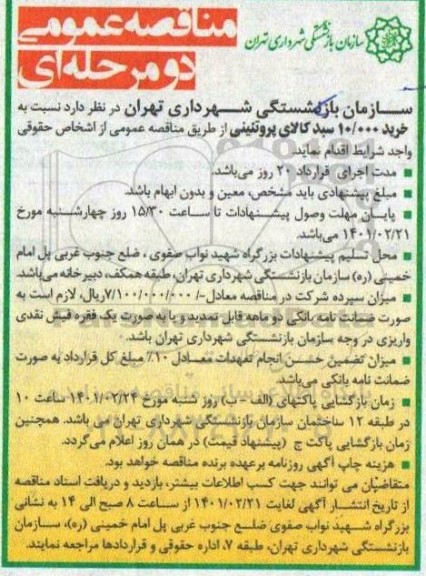 سازمان بازنشستگی شهرداری تهران
مناقصه عمومی
دو مرحله‌ای
سازمان بازنشستگی شهرداری تهران در نظر دارد نسبت به
خرید ۱۰/۰۰۰ سبد کالای پروتئینی از طریق مناقصه عمومی از اشخاص حقوقی
واجد شرایط اقدام نماید.
■ مدت اجرای قرارداد ۲۰ روز می‌باشد.
■ مبلغ پیشنهادی باید مشخص، معین و بدون ابهام باشد.
■ پایان مهلت وصول پیشنهادات تا ساعت ۱۵/۳۰ روز چهارشنبه مورخ
۱۴۰۱/۰۲/۲۱ می‌باشد.
■ محل تسلیم پیشنهادات بزرگراه شهید نواب صفوی ، ضلع جنوب غربی پل امام
خمینی (ره) سازمان بازنشستگی شهرداری تهران، طبقه همکف، دبیرخانه می‌باشد.
■ میزان سپرده شرکت در مناقصه معادل -/۷/۱۰۰/۰۰۰/۰۰۰ریال، لازم است به
صورت ضمانت نامه بانکی دو ماهه قابل تمدید و یا به صورت یک فقره فیش نقدی
واریزی در وجه سازمان بازنشستگی شهرداری تهران باشد.
■ میزان تضمین حسن انجام تعهدات معادل ۱۰٪ مبلغ کل قرارداد به صورت
ضمانت نامه بانکی می‌باشد.
■ زمان بازگشایی پاکتهای (الف - ب) روز شنبه مورخ ۱۴۰۱/۰۲/۲۴ ساعت ۱۰
در طبقه ۱۲ ساختمان سازمان بازنشستگی شهرداری تهران می باشد. همچنین
زمان بازگشایی پاکت ج (پیشنهاد قیمت) در همان روز اعلام می‌گردد.
■ هزینه چاپ آگهی روزنامه برعهده برنده مناقصه خواهد بود.
متقاضیان می توانند جهت کسب اطلاعات بیشتر، بازدید و دریافت اسناد مناقصه
از تاریخ انتشار آگهی لغایت ۱۴۰۱/۰۲/۲۱ از ساعت ۸ صبح الی ۱۴ به نشانی
بزرگراه شهید نواب صفوی ضلع جنوب غربی پل امام خمینی (ره)، سازمان
بازنشستگی شهرداری تهران، طبقه ۷، اداره حقوقی و قراردادها مراجعه نمایند.